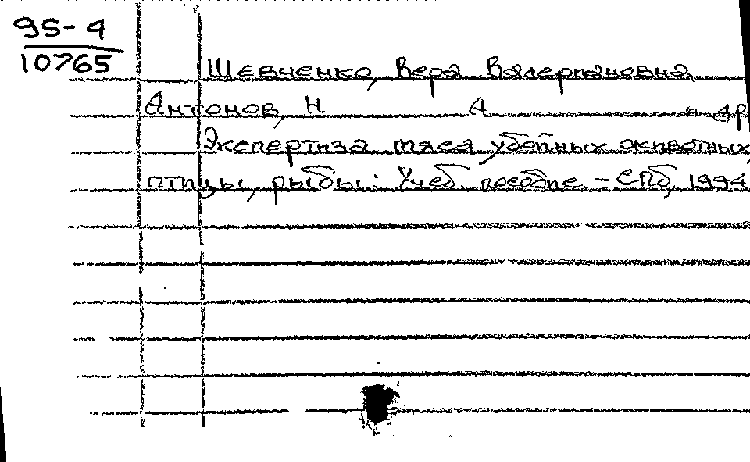 95-4
10765
Шевченко, Вера Валерьяновна
Антонов, Н А и др
Экспертиза мяса убойных животных
птицы, рыбы: Учеб. пособие. – СПб, 1994